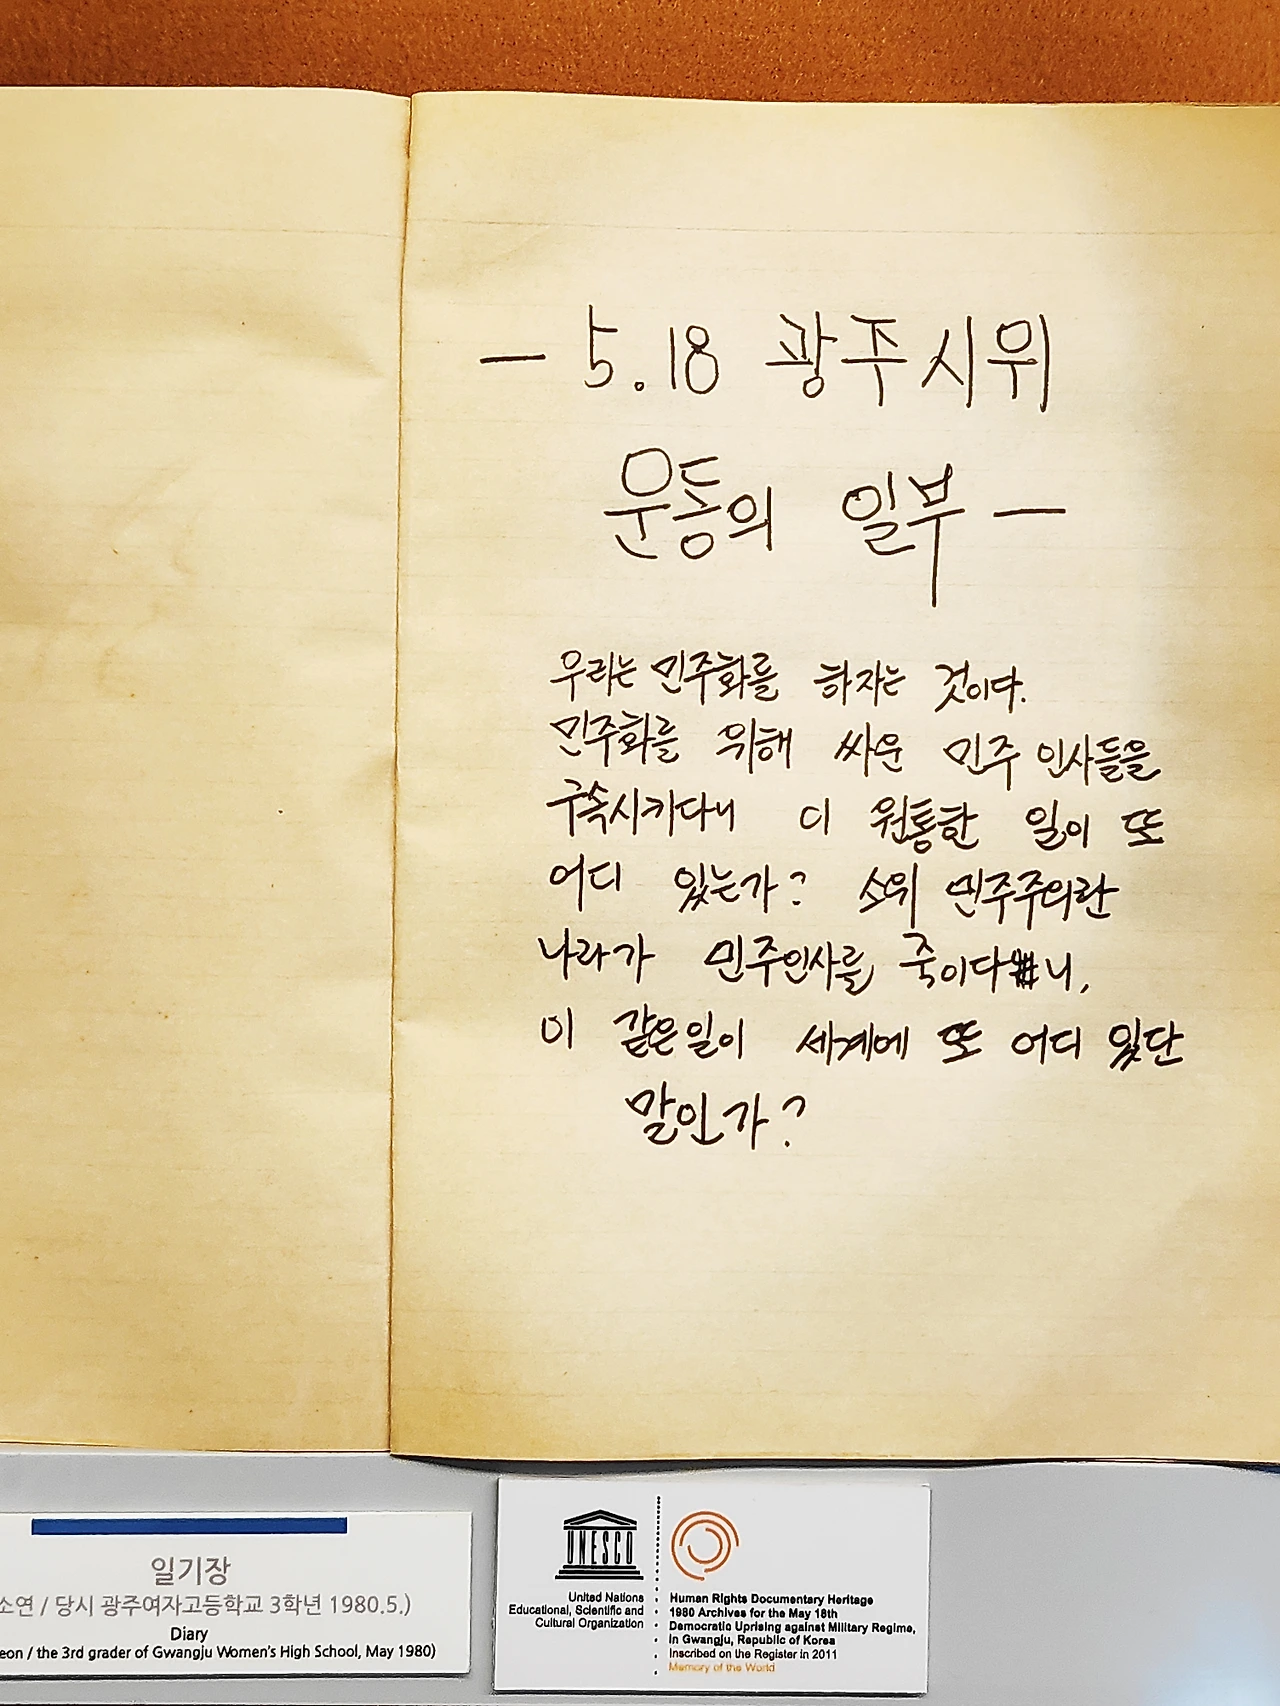 — 5.18 광주시위
운동의 일부 —
우리는 민주화를 하자는 것이다.
민주화를 위해 싸운 민주 인사들을
구속시키다니 이 원통한 일이 또
어디 있는가? 소위 민주주의란
나라가 민주인사를 죽이다니,
이 같은일이 세계에 또 어디 있단
말인가?
일기장
소연 / 당시 광주여자고등학교 3학년 1980.5.)
Diary
eon / the 3rd grader of Gwangju Women's High School, May 1980)
UNESCO
United Nations
Educational, Scientific and
Cultural Organization
Human Rights Documentary Heritage
1980 Archives for the May 18th
Democratic Uprising against Military Regime,
in Gwangju, Republic of Korea
Inscribed on the Register in 2011
Memory of the World